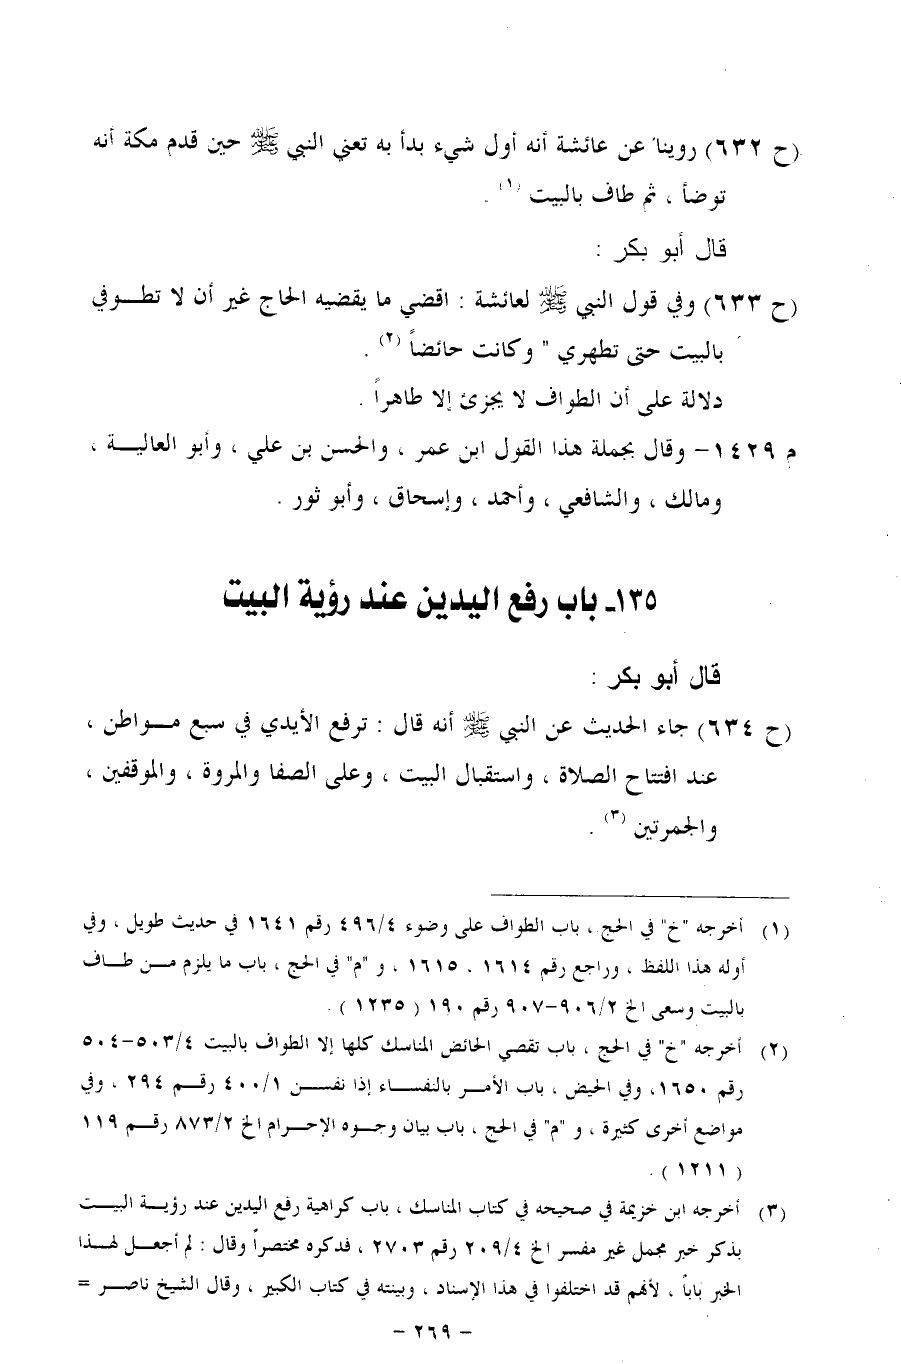 (ح ٦٣٢) روينا عن عائشة أنه أول شيء بدأ به تعني النبي ﷺ حين قدم مكة أنه
توضأ ، ثم طاف بالبيت (١) .
قال أبو بكر :
(ح ٦٣٣) وفي قول النبي ﷺ لعائشة : اقضي ما يقضيه الحاج غير أن لا تطــوفي
بالبيت حتى تطهري " وكانت حائضاً (٢) .
دلالة على أن الطواف لا يجزئ إلا طاهراً .
م ١٤٢٩ – وقال بجملة هذا القول ابن عمر ، والحسن بن علي ، وأبو العاليــة ،
ومالك ، والشافعي ، وأحمد ، وإسحاق ، وأبو ثور .
١٣٥ـ باب رفع اليدين عند رؤية البيت
قال أبو بكر :
(ح ٦٣٤) جاء الحديث عن النبي ﷺ أنه قال : ترفع الأيدي في سبع مــواطن ،
عند افتتاح الصلاة ، واستقبال البيت ، وعلى الصفا والمروة ، والموقفين ،
والجمرتين (٣) .
(١) أخرجه "خ" في الحج ، باب الطواف على وضوء ٤٩٦/٤ رقم ١٦٤١ في حديث طويل ، وفي
أوله هذا اللفظ ، وراجع رقم ١٦١٤ . ١٦١٥ ، و "م" في الحج ، باب ما يلزم مــن طــاف
بالبيت وسعى الخ ٩٠٦/٢–٩٠٧ رقم ١٩٠ ( ١٢٣٥ ) .
(٢) أخرجه "خ" في الحج ، باب تقضي الحائض المناسك كلها إلا الطواف بالبيت ٥٠٣/٤–٥٠٤
رقم ١٦٥٠، وفي الحيض ، باب الأمــر بالنفســاء إذا نفســن ٤٠٠/١ رقــم ٢٩٤ ، وفي
مواضع أخرى كثيرة ، و "م" في الحج ، باب بيان وجــوه الإحــرام الخ ٨٧٣/٢ رقــم ١١٩
( ١٢١١ ) .
(٣) أخرجه ابن خزيمة في صحيحه في كتاب المناسك ، باب كراهية رفع اليدين عند رؤيــة البيــت
بذكر خبر مجمل غير مفسر الخ ٢٠٩/٤ رقم ٢٧٠٣ ، فدكره مختصراً وقال : لم أجعــل لهــذا
الخبر باباً ، لأنهم قد اختلفوا في هذا الإسناد ، وبينته في كتاب الكبير ، وقال الشيخ ناصــر =
– ٢٦٩ –